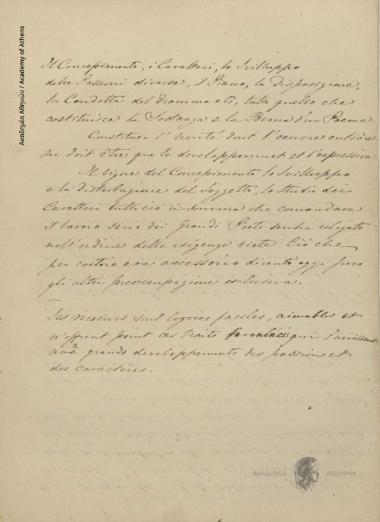 Ακαδημία Αθηνών / Academy of Athens
Il Concepimento, i Caratteri, lo Sviluppo
delle Passioni diverse, il Piano, la Disposizione,
la Condotta del Dramma etc, tutto quello che
costituisce la Sostanza e la Forma d'un Poema
Constituer l'unité dont l'oeuvre entière
ne doit être que le développement et l'expression
Il vigore del Concepimento lo Sviluppo
e la distribuzione del Soggetto, lo Studio dei
Caratteri tutto ciò in somma che comandava
il lavoro serio dei Grandi Poeti sembra relegato
nell'ordine delle esigenze viete. Ciò che
per costoro era accessorio diventò oggi per
gli altri preoccupazione esclusiva.
Les moeurs sont logores faciles, aimables et
n'offrent point ces traits qui
aux grands développements des passions et
des caractères.
ΑΚΑΔΗΜΙΑ ΑΘΗΝΩΝ